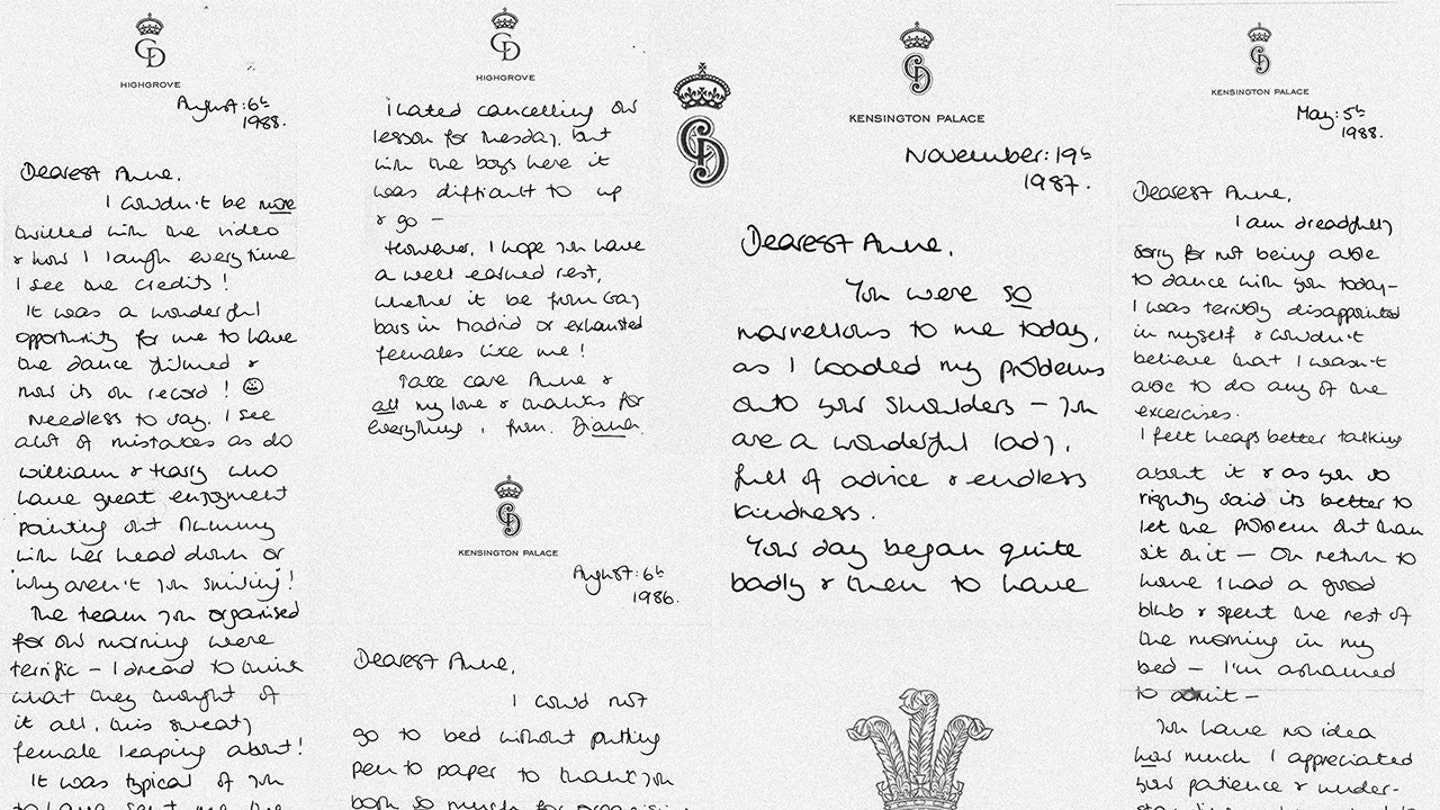 HIGHGROVE
August: 6th
1988.
Dearest Anne,
I couldn't be more
thrilled with the video
& how I laugh everytime
I see the credits!
It was a wonderful
opportunity for me to have
the dance filmed &
now its on record!
Needless to say, I see
alot of mistakes as do
William & Harry who
have great enjoyment
pointing out Mummy
with her head down or
'why aren't you smiling'!
The team you organised
for our morning were
terrific - I dread to think
what they thought of
it all, this sweaty
female leaping about!
It was typical of you
to have sent me the
HIGHGROVE
I hated cancelling our
lesson for Tuesday, but
with the boys here it
was difficult to up
& go -
However, I hope you have
a well earned rest,
whether it be from Gay
bars in Madrid or exhausted
females like me!
Take care Anne &
all my love & thanks for
everything, from, Diana.
KENSINGTON PALACE
August: 6th
1986.
Dearest Anne,
I could not
go to bed without putting
pen to paper to thank you
both so much for organising
KENSINGTON PALACE
November: 19th
1987.
Dearest Anne,
You were so
marvellous to me today,
as I loaded my problems
onto your shoulders - you
are a wonderful lady,
full of advice & endless
kindness.
Your day began quite
badly & then to have
KENSINGTON PALACE
May: 5th
1988.
Dearest Anne,
I am dreadfully
sorry for not being able
to dance with you today -
I was terribly disappointed
in myself & couldn't
believe that I wasn't
able to do any of the
exercises.
I felt heaps better talking
about it & as you so
rightly said its better to
let the problem out than
sit on it - On return to
home I had a good
blub & spent the rest of
the morning in my
bed - I'm ashamed
to admit -
You have no idea
how much I appreciated
your patience & under-